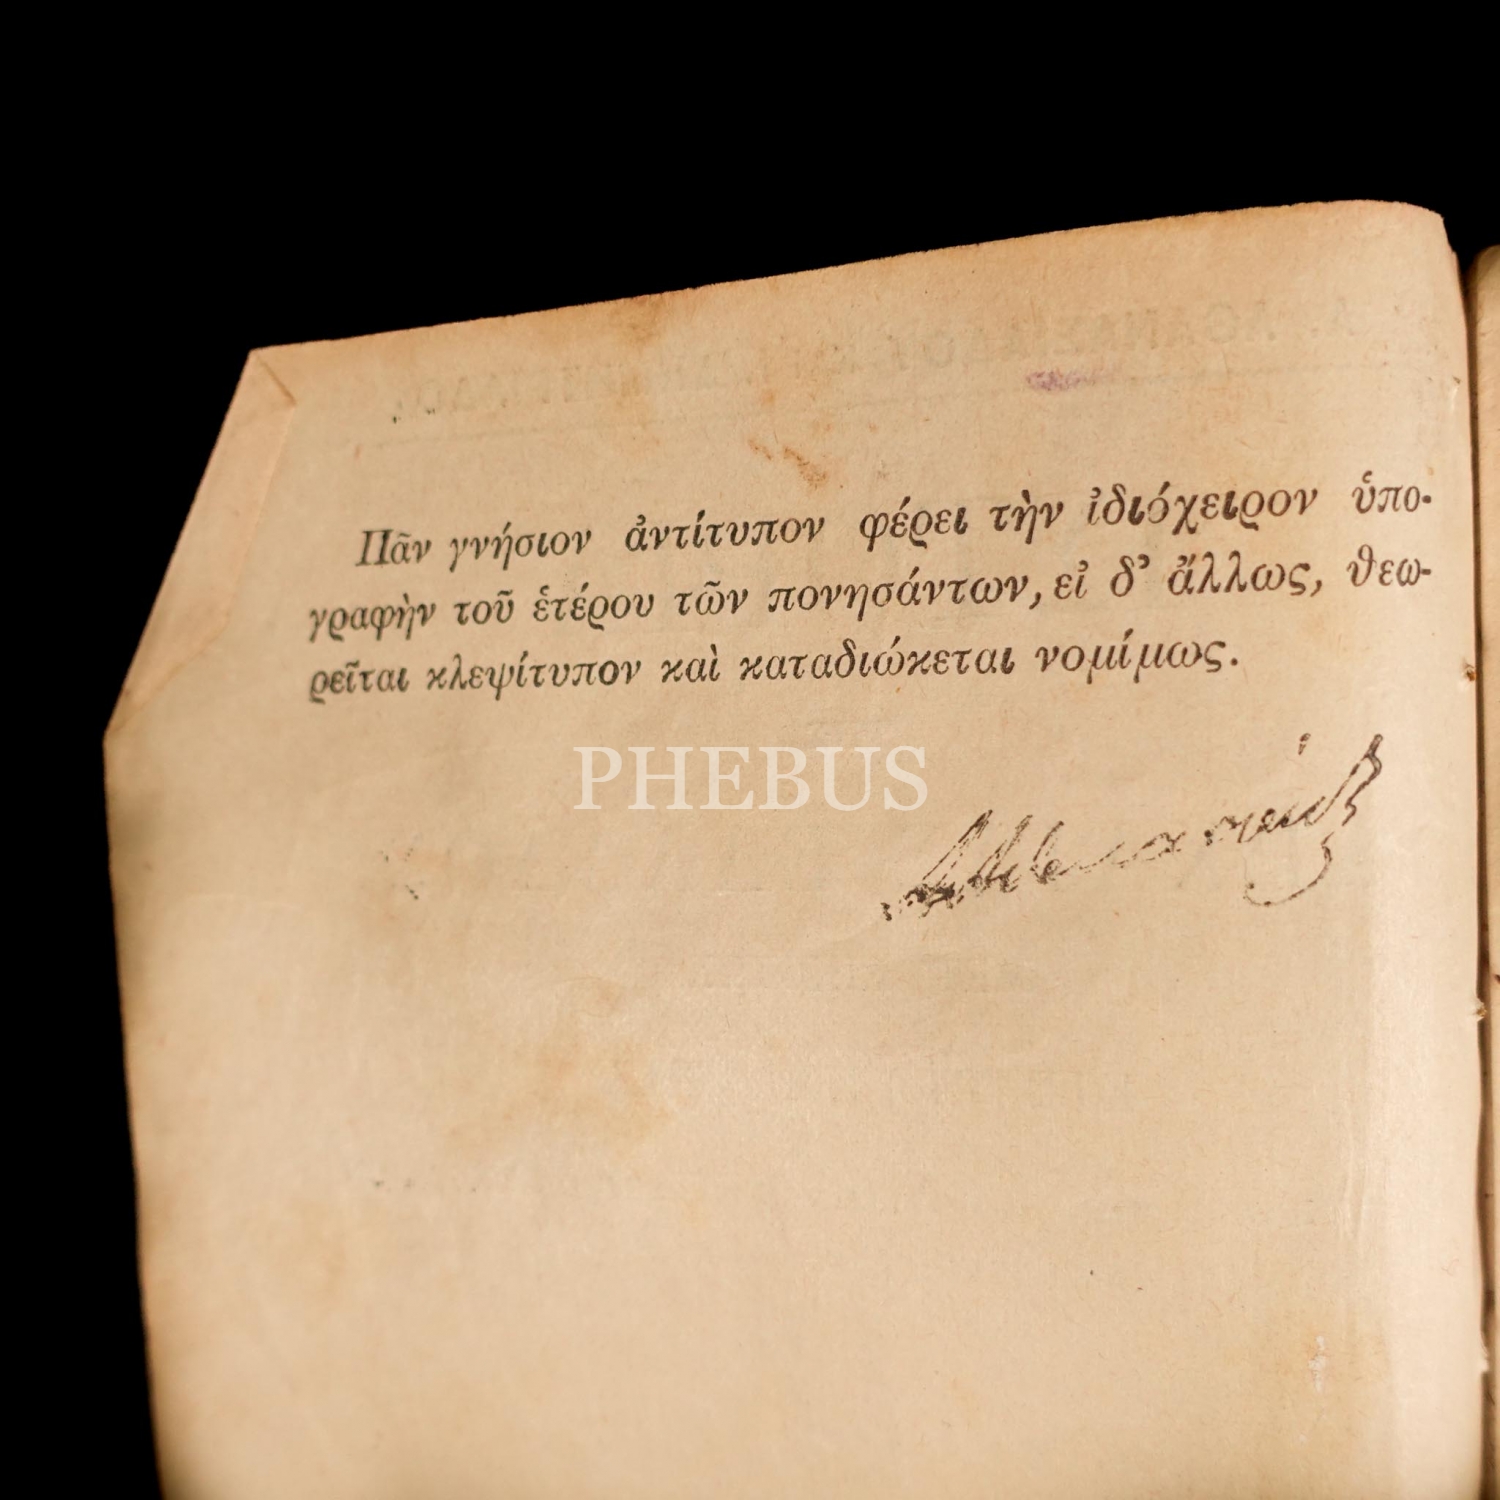 Πᾶν γνήσιον ἀντίτυπον φέρει τὴν ἰδιόχειρον ὑπο-
γραφὴν τοῦ ἑτέρου τῶν πονησάντων, εἰ δ' ἄλλως, θεω-
ρεῖται κλεψίτυπον καὶ καταδιώκεται νομίμως.
PHEBUS